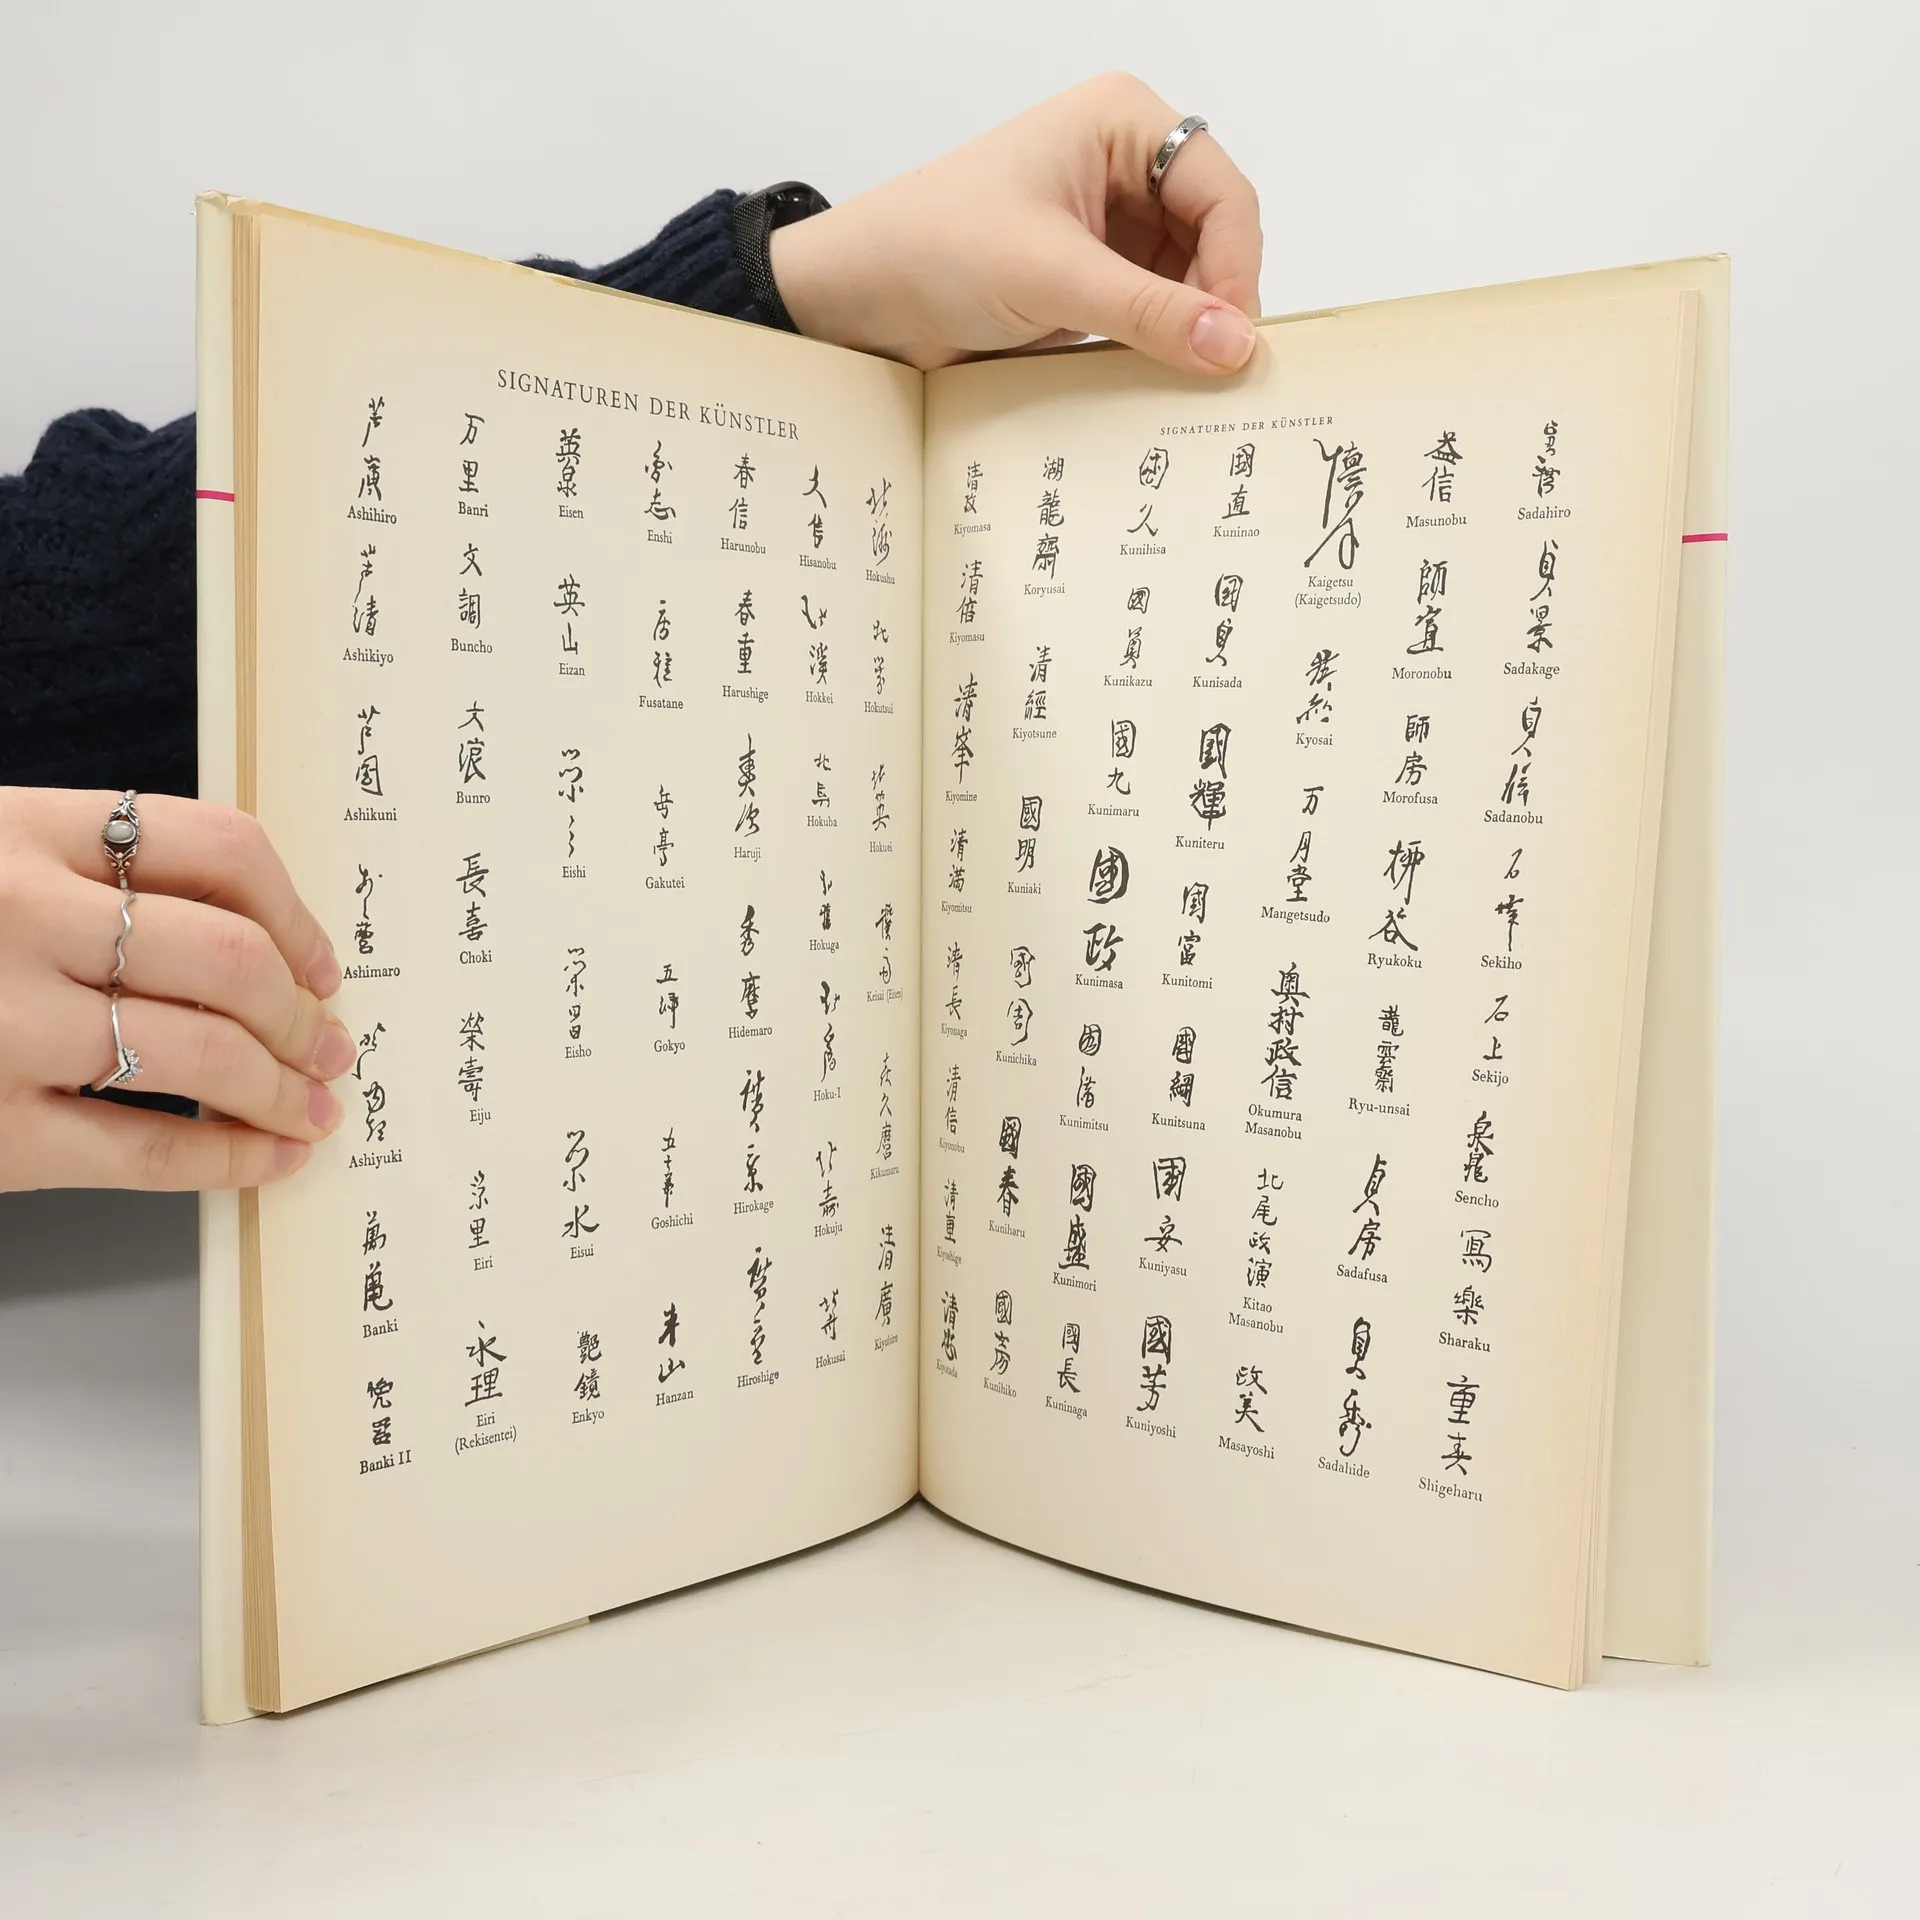 SIGNATUREN DER KÜNSTLER
芦廣
Ashihiro
芦清
Ashikiyo
芦国
Ashikuni
Ashimaro
Ashiyuki
萬亀
Banki
Banki II
万里
Banri
文調
Buncho
文浪
Bunro
長喜
Choki
榮壽
Eiju
栄里
Eiri
永理
Eiri
(Rekisentei)
英泉
Eisen
英山
Eizan
栄之
Eishi
栄昌
Eisho
栄水
Eisui
艶鏡
Enkyo
Enshi
房種
Fusatane
岳亭
Gakutei
五郷
Gokyo
Goshichi
半山
Hanzan
春信
Harunobu
春重
Harushige
Haruji
秀麿
Hidemaro
廣景
Hirokage
廣重
Hiroshige
久信
Hisanobu
北溪
Hokkei
北馬
Hokuba
Hokuga
Hoku-I
北寿
Hokuju
Hokusai
北洲
Hokushu
Hokutsui
北英
Hokuei
Keisai (Eisen)
喜久麿
Kikumaru
清廣
Kiyohiro
SIGNATUREN DER KÜNSTLER
清政
Kiyomasa
清倍
Kiyomasu
清峯
Kiyomine
清満
Kiyomitsu
清長
Kiyonaga
清信
Kiyonobu
清重
Kiyoshige
清忠
Kiyotada
湖龍齋
Koryusai
清經
Kiyotsune
國明
Kuniaki
國周
Kunichika
國春
Kuniharu
國彦
Kunihiko
國久
Kunihisa
國員
Kunikazu
國九
Kunimaru
國政
Kunimasa
Kunimitsu
國盛
Kunimori
國長
Kuninaga
國直
Kuninao
国貞
Kunisada
國輝
Kuniteru
国富
Kunitomi
國綱
Kunitsuna
國安
Kuniyasu
國芳
Kuniyoshi
懐月
Kaigetsu
(Kaigetsudo)
Kyosai
万月堂
Mangetsudo
奥村政信
Okumura
Masanobu
北尾政演
Kitao
Masanobu
政美
Masayoshi
益信
Masunobu
師宣
Moronobu
師房
Morofusa
柳谷
Ryukoku
龍雲齋
Ryu-unsai
貞房
Sadafusa
貞秀
Sadahide
Sadahiro
貞景
Sadakage
貞信
Sadanobu
石峰
Sekiho
石上
Sekijo
Sencho
寫樂
Sharaku
重春
Shigeharu